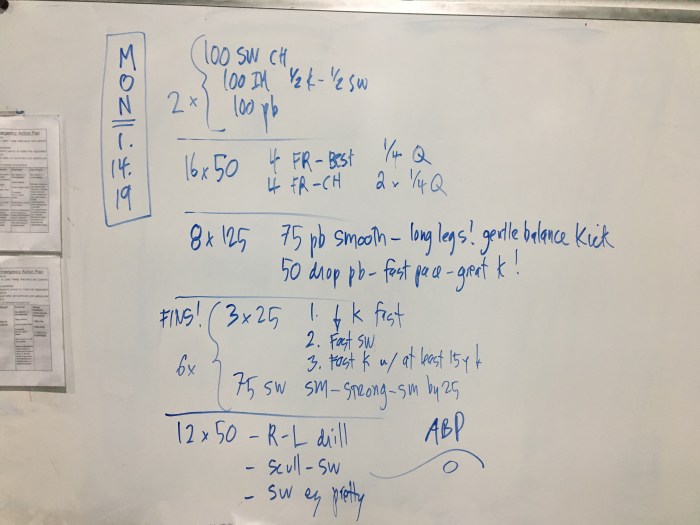 MON 1.14.19
2 x
100 SW CH
100 IM ½ K - ½ SW
100 pb
16 x 50 4 FR - Best ¼ Q
4 FR - CH 2 x ¼ Q
8 x 125 75 pb smooth - long legs! gentle balance Kick
50 drop pb - fast pace - great k!
FINS! 3 x 25 1. ↓ K fast
2. Fast SW
3. Fast K w/ at least 15y ↓
6x
75 SW SM - STRONG - SM by 25
12 x 50 - R-L drill
- scull - SW
- SW ez pretty
ABP
Emergency Action Plan
Emergency Action Plan